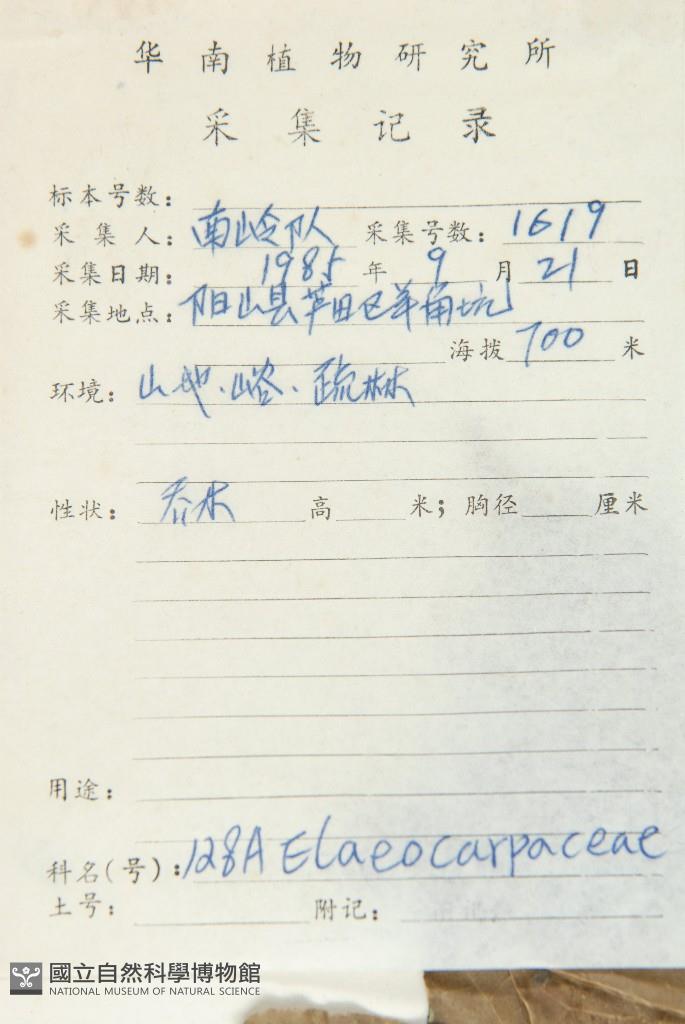 华南植物研究所
采集记录
标本号数：
采集人：南岭队 采集号数：1619
采集日期：1985年9月21日
采集地点：阳山县 田 羊角坑
海拨 700 米
环境：山地·山谷·疏林
性状：乔木 高 米；胸径 厘米
用途：
科名(号)：128A Elaeocarpaceae
土号： 附记：
國立自然科學博物館
NATIONAL MUSEUM OF NATURAL SCIENCE